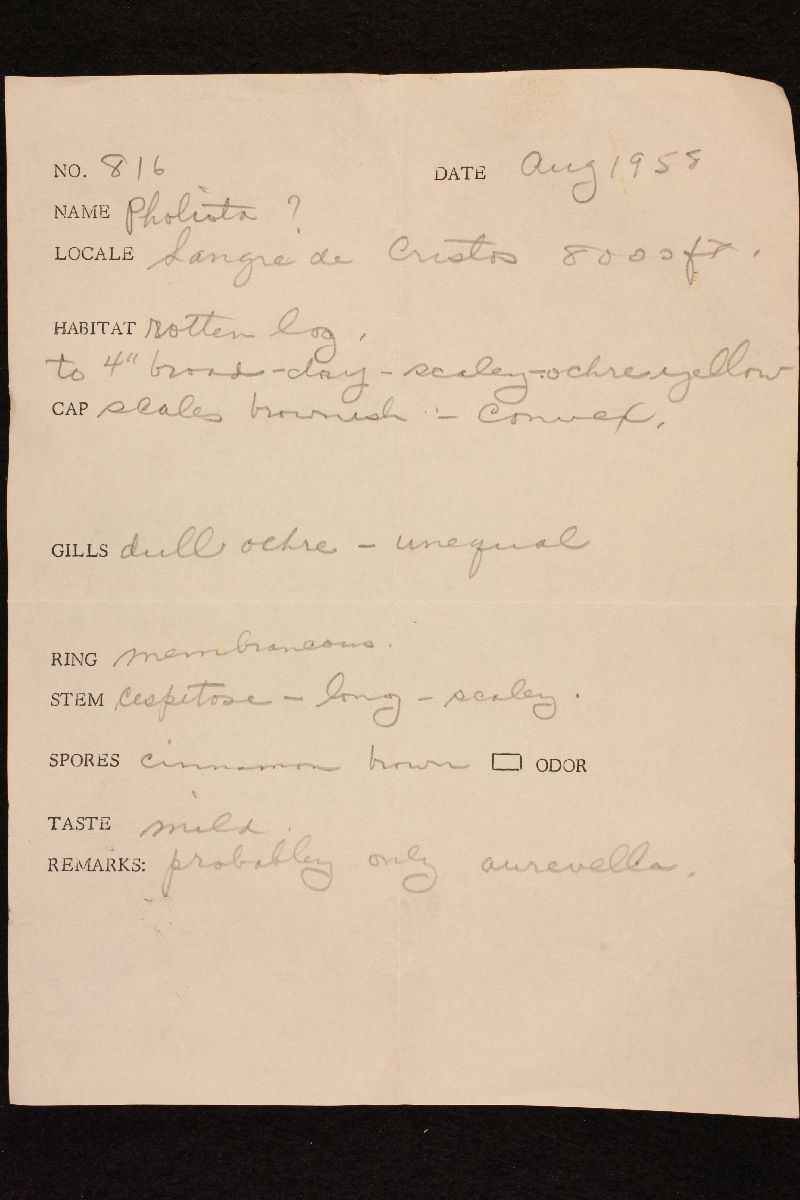 NO. 816 DATE Aug 1958
NAME Pholiota ?
LOCALE Sangre de Cristos 8000 ft.
HABITAT rotten log.
to 4" broad - dry - scaley - ochre yellow
CAP scales brownish - convex.
GILLS dull ochre - unequal
RING membraneous.
STEM cespitose - long - scaley.
SPORES cinnamon brown ODOR
TASTE mild.
REMARKS: probabley only aurevella.